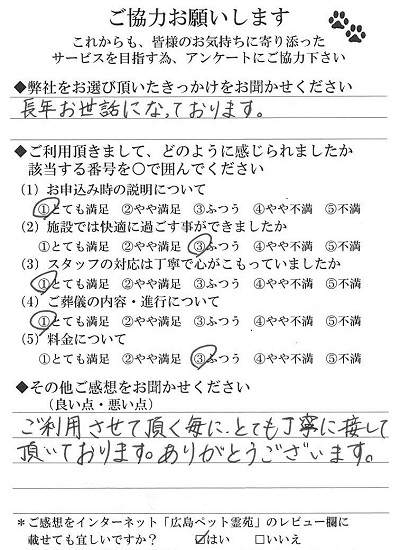 ご協力お願いします
これからも、皆様のお気持ちに寄り添った
サービスを目指す為、アンケートにご協力下さい
◆弊社をお選び頂いたきっかけをお聞かせください
長年お世話になっております。
◆ご利用頂きまして、どのように感じられましたか
該当する番号を○で囲んでください
(1) お申込み時の説明について
①とても満足 ②やや満足 ③ふつう ④やや不満 ⑤不満
(2) 施設では快適に過ごす事ができましたか
①とても満足 ②やや満足 ③ふつう ④やや不満 ⑤不満
(3) スタッフの対応は丁寧で心がこもっていましたか
①とても満足 ②やや満足 ③ふつう ④やや不満 ⑤不満
(4) ご葬儀の内容・進行について
①とても満足 ②やや満足 ③ふつう ④やや不満 ⑤不満
(5) 料金について
①とても満足 ②やや満足 ③ふつう ④やや不満 ⑤不満
◆その他ご感想をお聞かせください
(良い点・悪い点)
ご利用させて頂く毎に、とても丁寧に接して
頂いております。ありがとうございます。
*ご感想をインターネット「広島ペット霊苑」のレビュー欄に
載せても宜しいですか？ ☑はい □いいえ